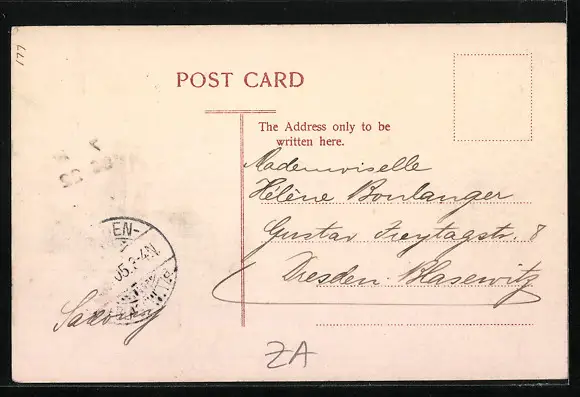 177
POST CARD
The Address only to be
written here.
Mademoiselle
Hélène Boulanger
Gustav Freytagstr. 8
Dresden-Blasewitz
EN-
05.3-4N.
Saxony
ZA